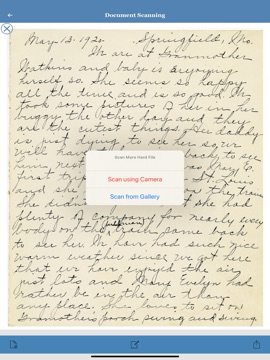 Document Scanning
May 12-1920. Springfield, Mo.
We are at Grandmother
Watkins and baby is enjoying
herself so. She seems so happy
all the time and is so good. We
took some pictures of her in her
buggy the other day and they
are the cutest things. Her daddy
is just dying to see her so we
will have to back to see
him next
first trip
and she on the train
She didn't she had
plenty of company for nearly every
body on the train came back
to see her. We have had such nice
warm weather since we got here
that we have enjoyed the air
just lots and Mary Evelyn had
rather be in the air than
any place. She loves to sit on
Grandmother's porch swing and swing
Scan More Hard File
Scan using Camera
Scan from Gallery